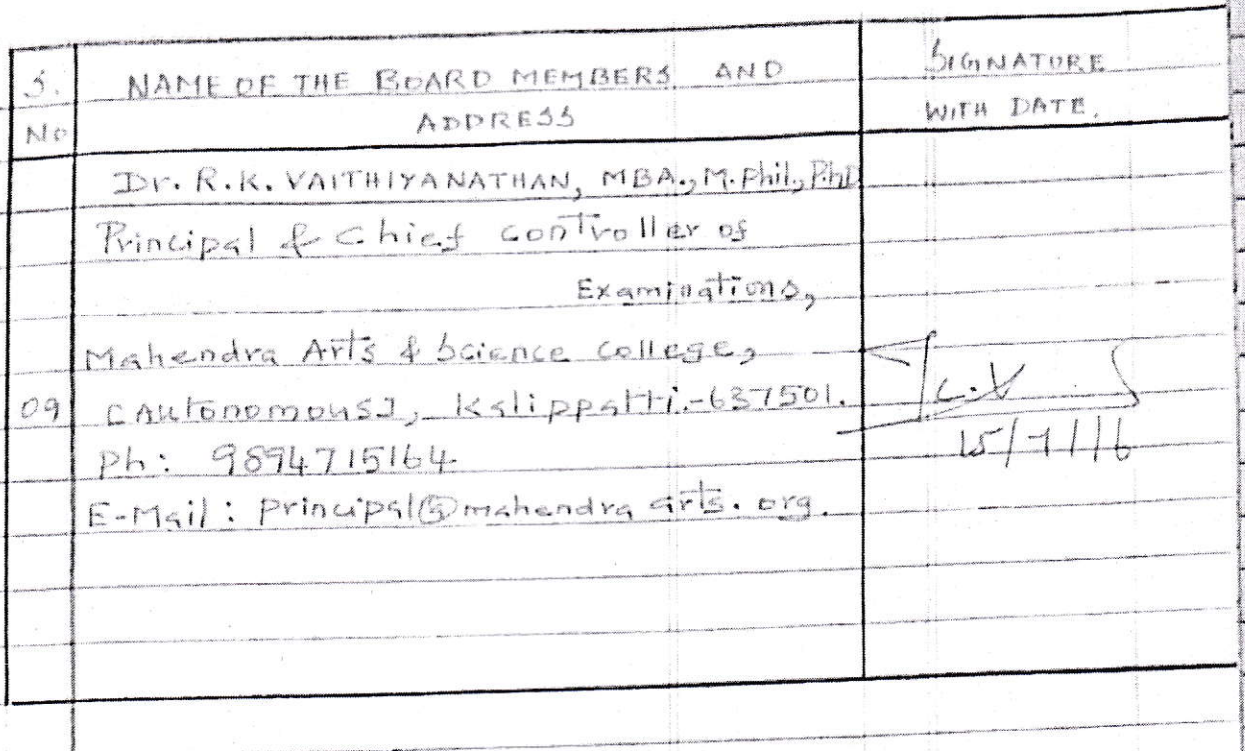 S. NAME OF THE BOARD MEMBERS AND SIGNATURE
No ADDRESS WITH DATE.
Dr. R.K. VAITHIYANATHAN, MBA., M.Phil., Ph.D
Principal & Chief controller of
Examinations,
Mahendra Arts & Science college,
09 (Autonomous), Kalippatti.-637501.
Ph: 9894715164
15/7/16
E-Mail: principal@mahendra arts. org.